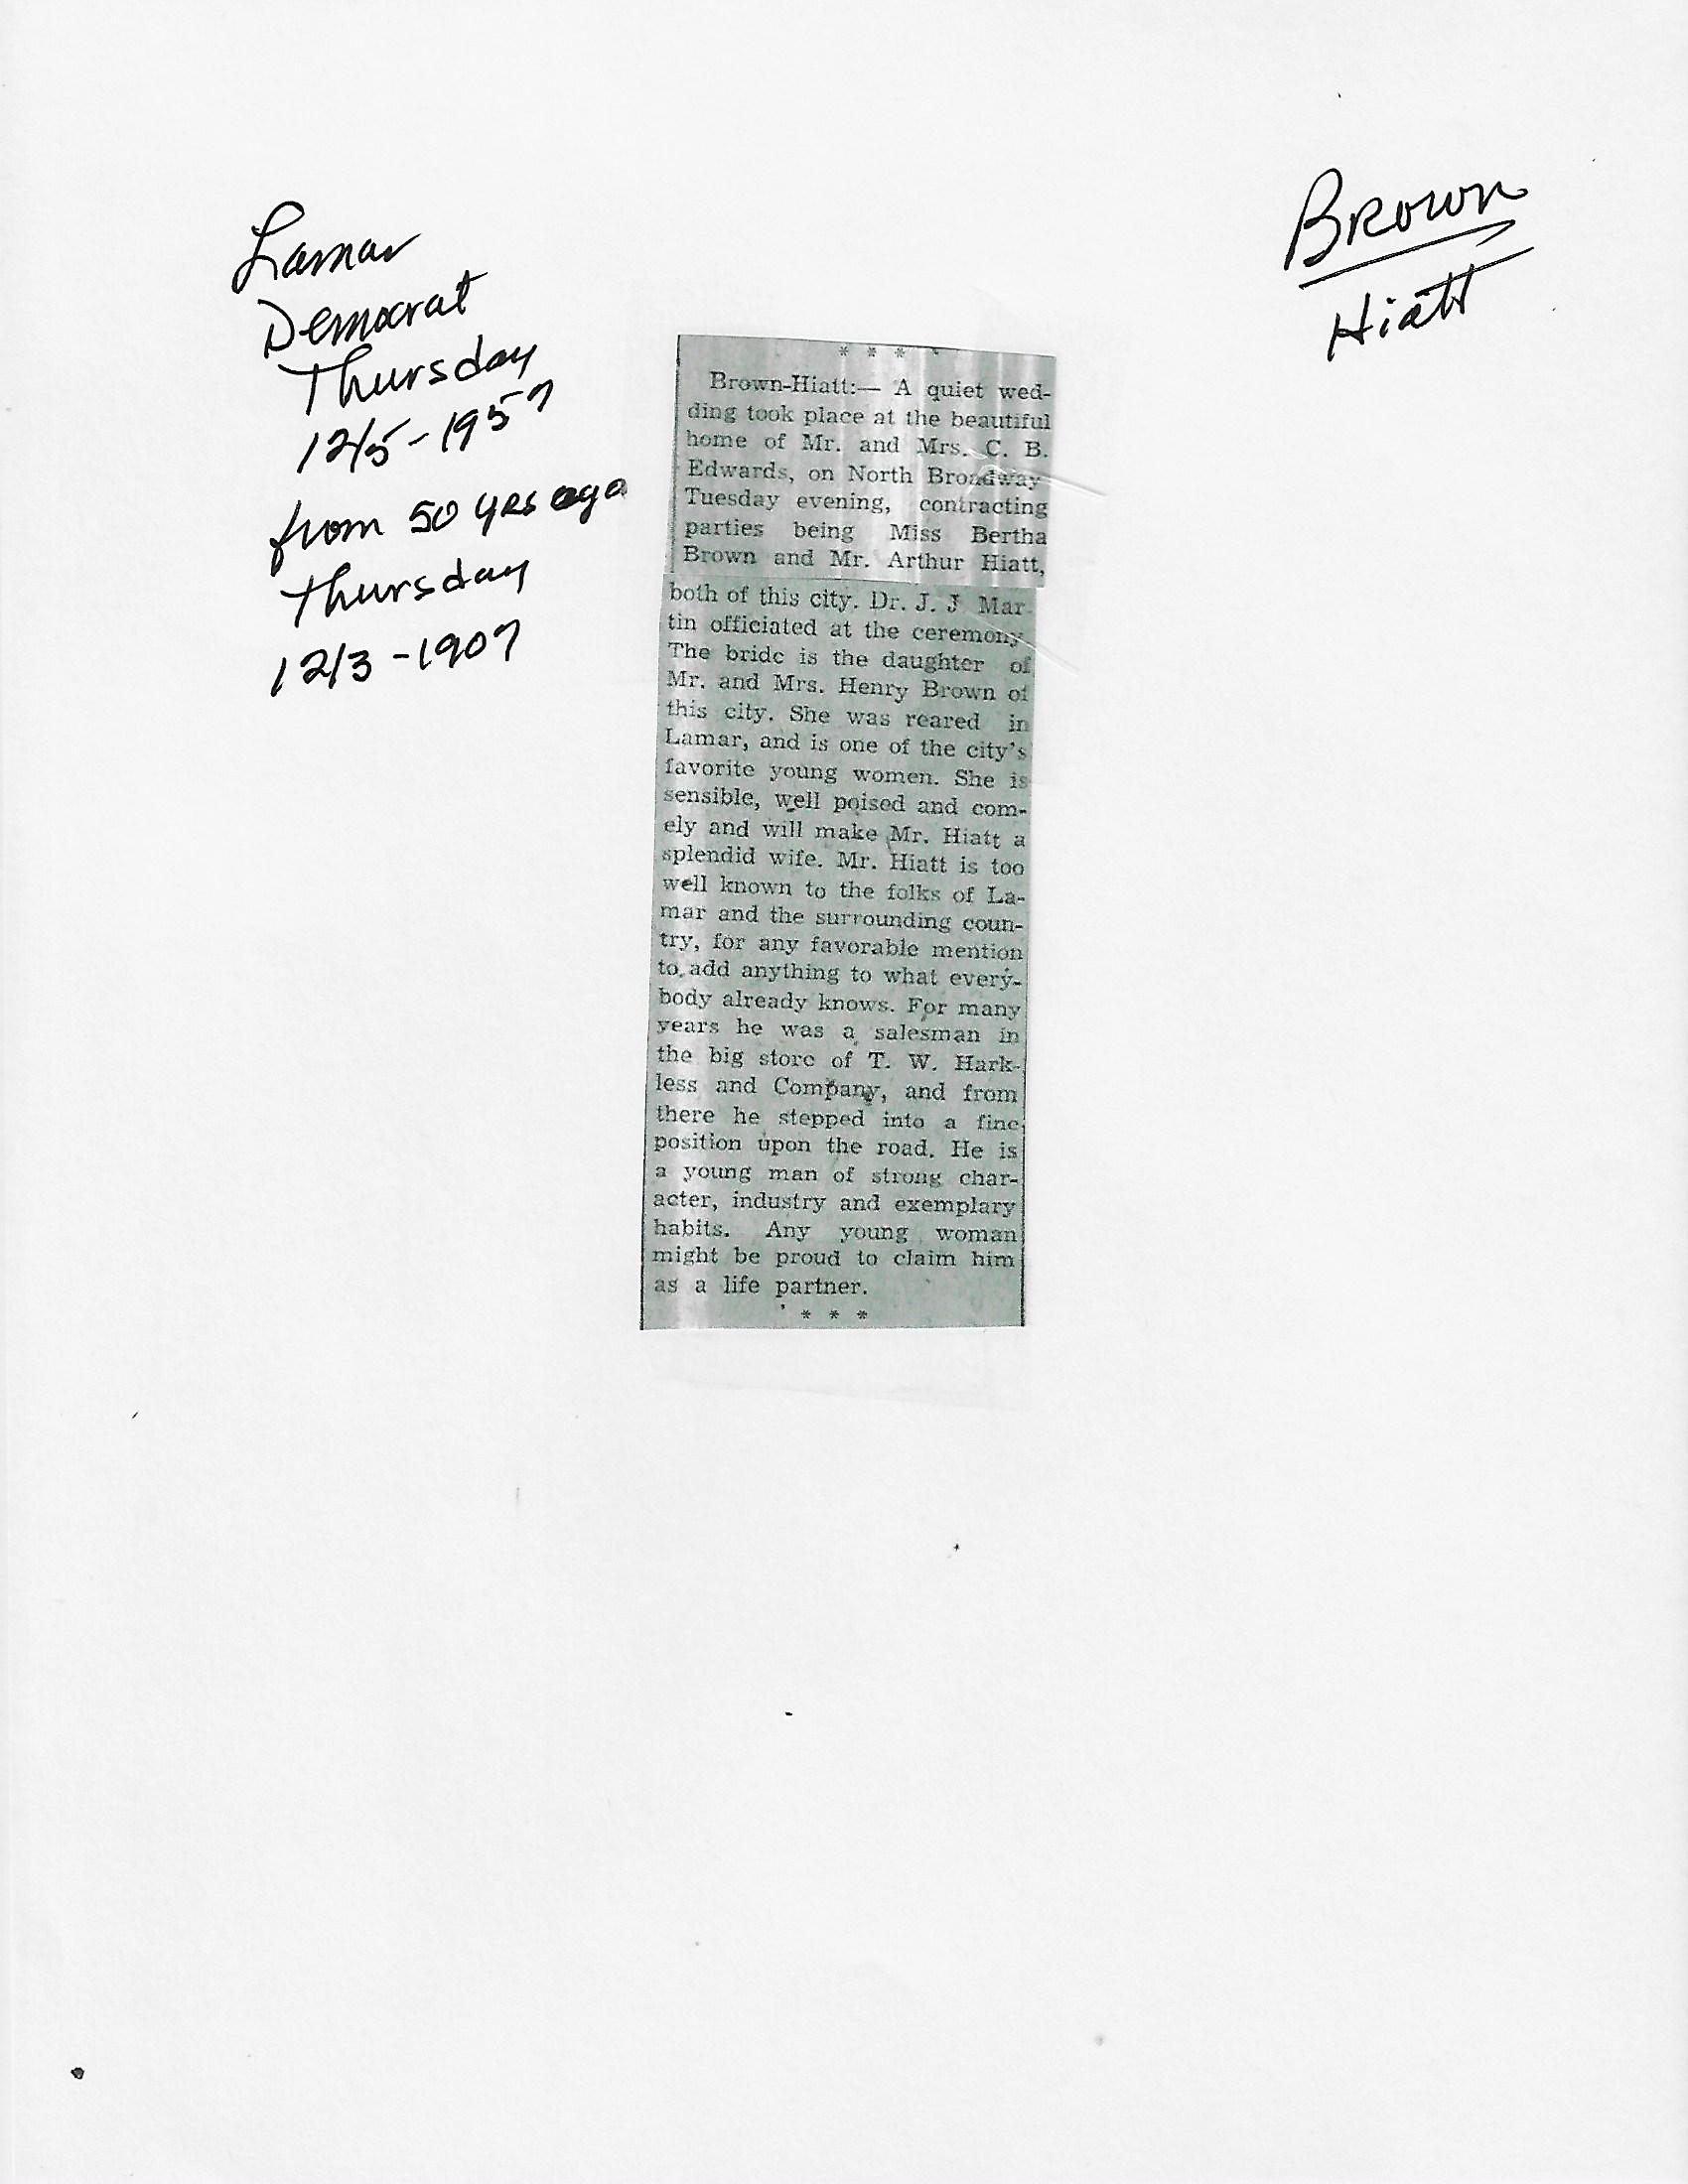 Lamar
Democrat
Thursday
12/5-1957
from 50 yrs ago
Thursday
12/3-1907
Brown
Hiatt
* * *
Brown-Hiatt:— A quiet wed-
ding took place at the beautiful
home of Mr. and Mrs. C. B.
Edwards, on North Broadway
Tuesday evening, contracting
parties being Miss Bertha
Brown and Mr. Arthur Hiatt,
both of this city. Dr. J. J Mar-
tin officiated at the ceremony
The bride is the daughter of
Mr. and Mrs. Henry Brown of
this city. She was reared in
Lamar, and is one of the city's
favorite young women. She is
sensible, well poised and com-
ely and will make Mr. Hiatt a
splendid wife. Mr. Hiatt is too
well known to the folks of La-
mar and the surrounding coun-
try, for any favorable mention
to add anything to what every-
body already knows. For many
years he was a salesman in
the big store of T. W. Hark-
less and Company, and from
there he stepped into a fine
position upon the road. He is
a young man of strong char-
acter, industry and exemplary
habits. Any young woman
might be proud to claim him
as a life partner.
* * *